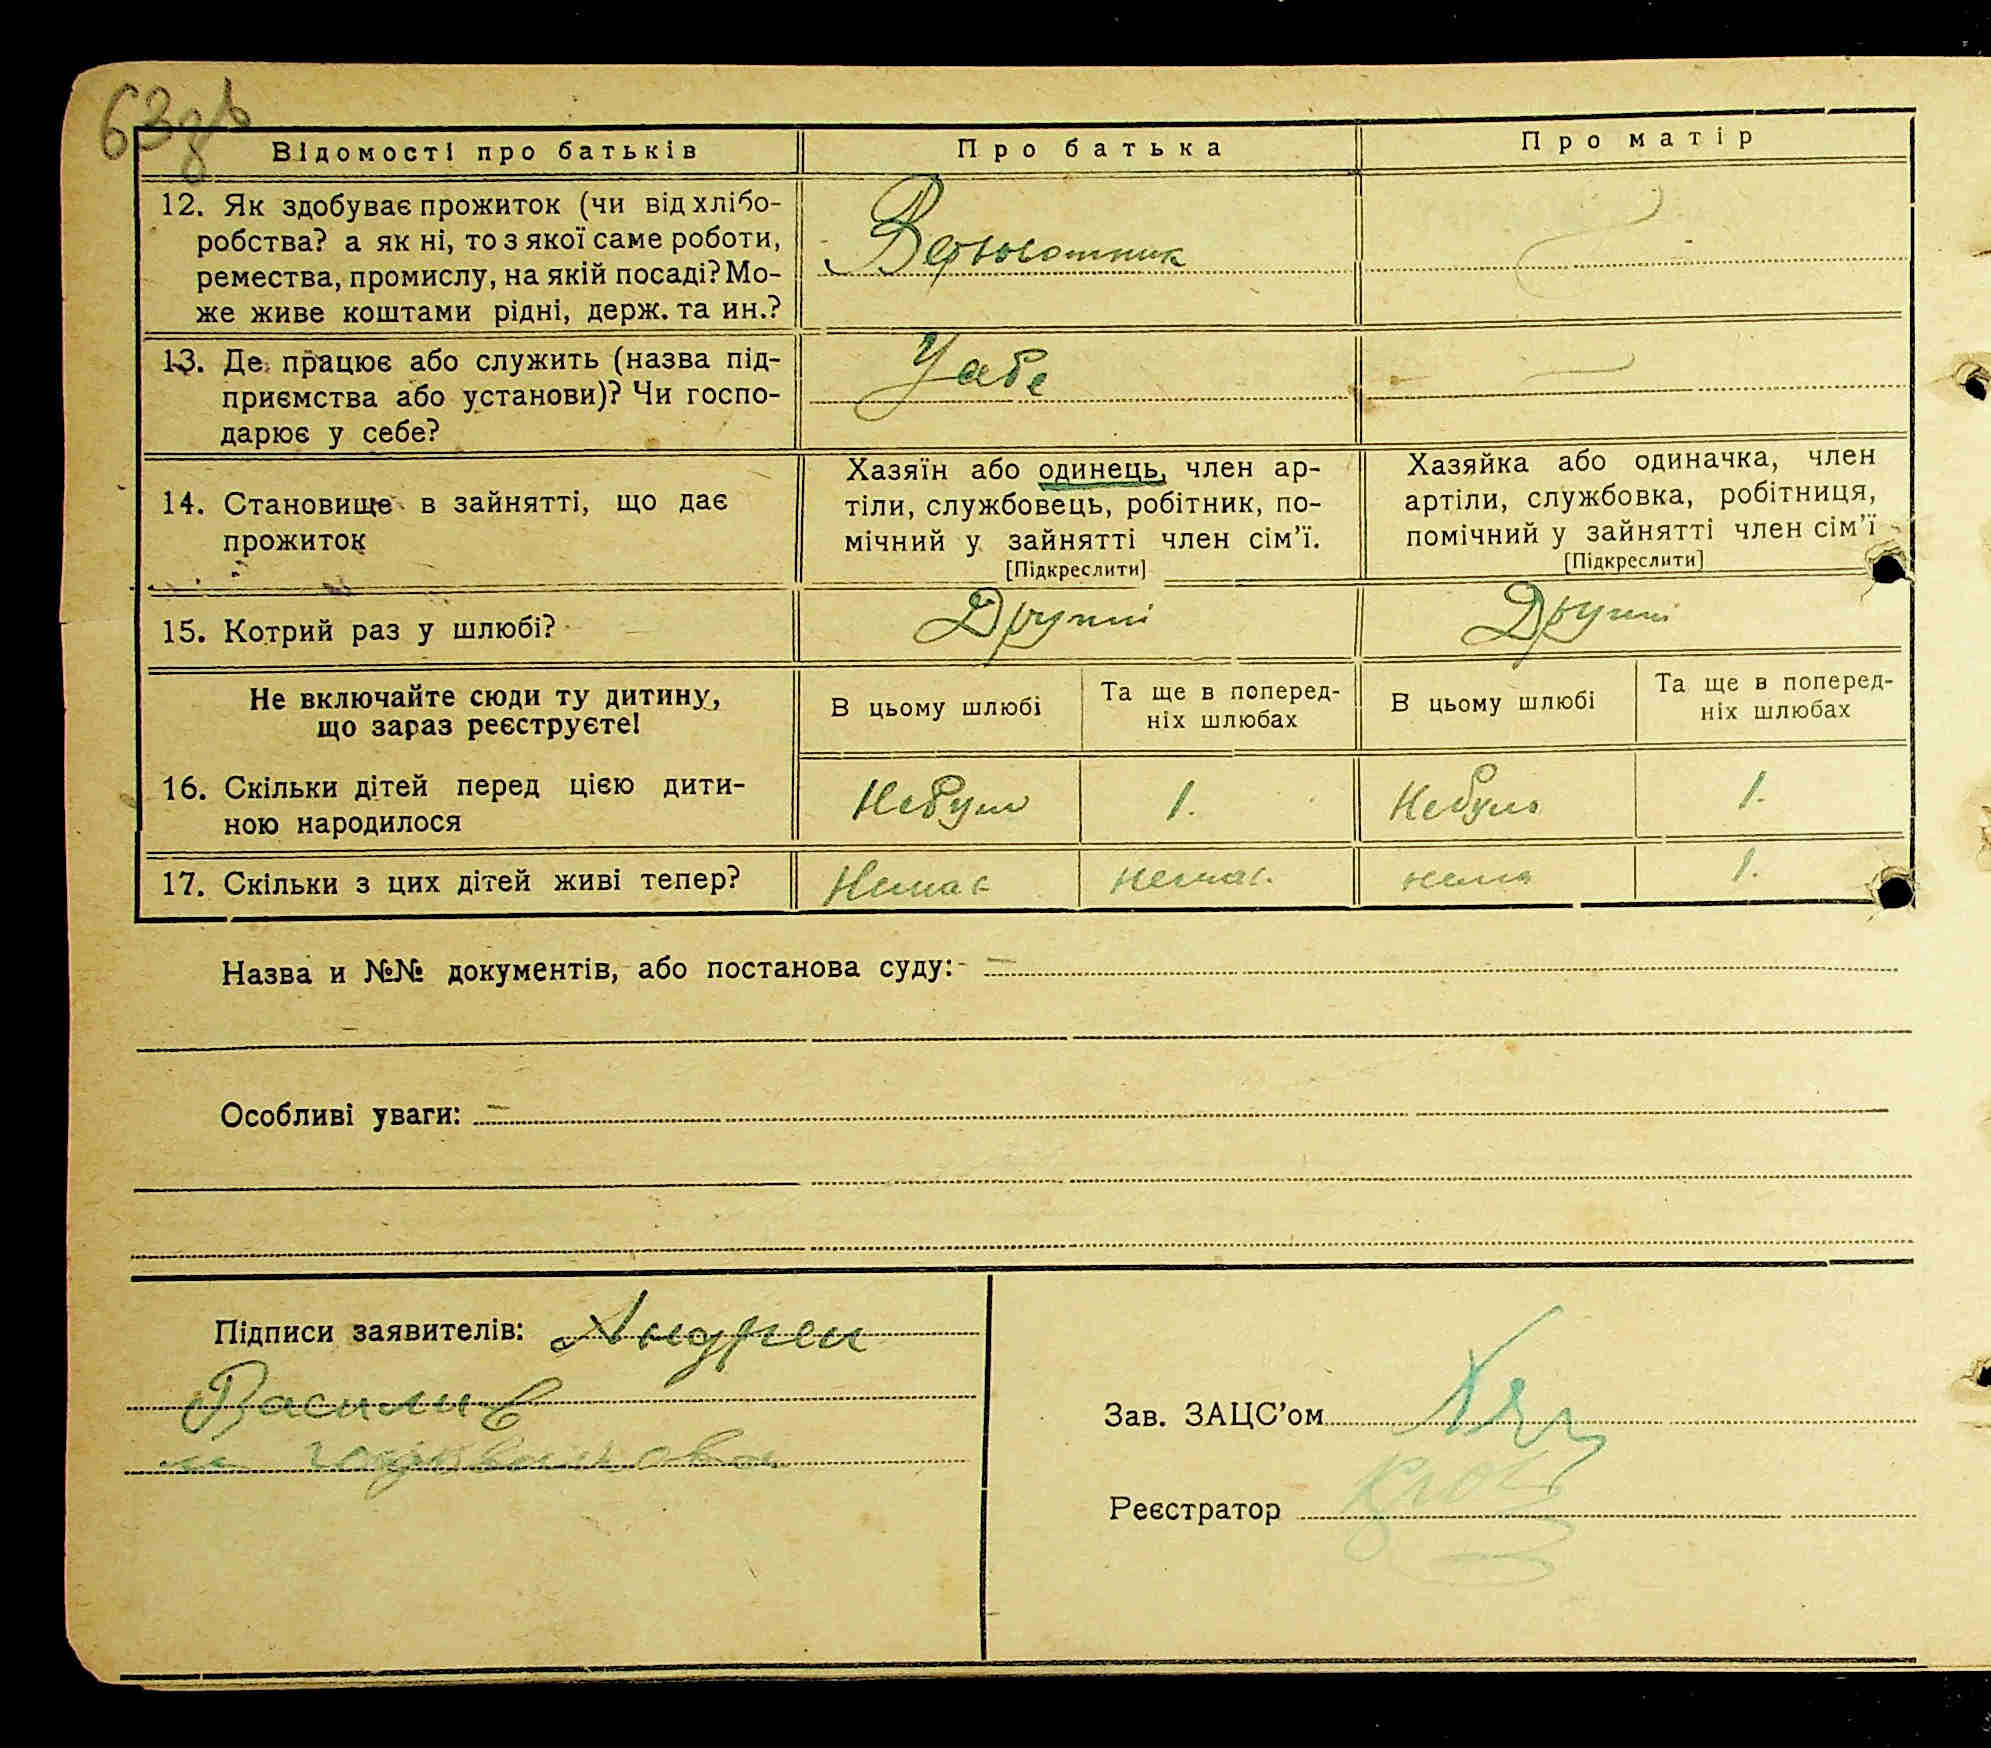 63зв
Відомості про батьків
Про батька
Про матір
12. Як здобуває прожиток (чи від хлібо-
робства? а як ні, то з якої саме роботи,
ремества, промислу, на якій посаді? Мо-
же живе коштами рідні, держ. та ин.?
13. Де працює або служить (назва під-
приємства або установи)? Чи госпо-
дарює у себе?
Усебе
14. Становище в зайнятті, що дає
прожиток
Хазяїн або одинець, член ар-
тіли, службовець, робітник, по-
мічний у зайнятті член сім'ї.
[Підкреслити]
Хазяйка або одиначка, член
артіли, службовка, робітниця,
помічний у зайнятті член сім'ї
[Підкреслити]
15. Котрий раз у шлюбі?
Не включайте сюди ту дитину,
що зараз реєструєте!
В цьому шлюбі
Та ще в поперед-
ніх шлюбах
В цьому шлюбі
Та ще в поперед-
ніх шлюбах
16. Скільки дітей перед цією дити-
ною народилося
Небуло
1.
Небуло
1.
17. Скільки з цих дітей живі тепер?
Немає
немає.
нема
1.
Назва и №№ документів, або постанова суду: -
Особливі уваги: -
Підписи заявителів: Андреи
Василив
Зав. ЗАЦС'ом
Реєстратор